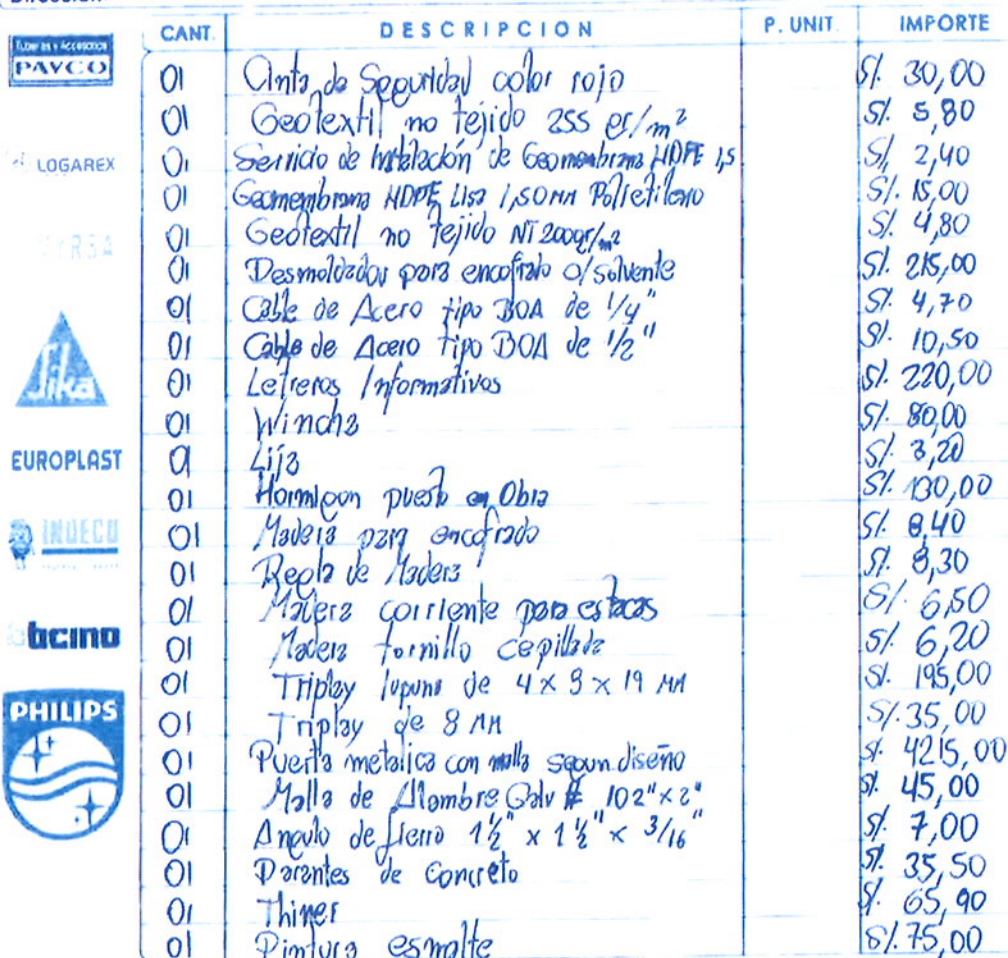 CANT. DESCRIPCION P. UNIT. IMPORTE
Tuberias y Accesorios
PAVCO
LOGAREX
Sika
EUROPLAST
INDECO
ticino
PHILIPS
01 Cinta de Seguridad color rojo S/. 30,00
01 Geotextil no tejido 255 gr/m² S/. 5,80
01 Servicio de Instalación de Geomembrana HDPE 1,5 S/. 2,40
01 Geomembrana HDPE Lisa 1,50 MM Polietileno S/. 15,00
01 Geotextil no tejido NT 200gr/m² S/. 4,80
01 Desmoldador para encofrato o/solvente S/. 215,00
01 Cable de Acero tipo BOA de 1/4" S/. 4,70
01 Cable de Acero tipo BOA de 1/2" S/. 10,50
01 Letreros Informativos S/. 220,00
01 Wincha S/. 80,00
01 Lija S/. 3,20
01 Hormigon puesto en Obra S/. 130,00
01 Madera para encofrado S/. 8,40
01 Regla de Madera S/. 8,30
01 Madera corriente para estacas S/. 6,50
01 Madera tornillo cepillada S/. 6,20
01 Triplay lupuna de 4 x 8 x 19 MM S/. 195,00
01 Triplay de 8 MM S/. 35,00
01 Puerta metalica con malla segun diseño S/. 4215,00
01 Malla de Alambre Galv # 10 2" x 2" S/. 45,00
01 Angulo de fierro 1 1/2" x 1 1/2" x 3/16" S/. 7,00
01 Parantes de Concreto S/. 35,50
01 Thiner S/. 65,90
01 Pintura esmalte S/. 75,00